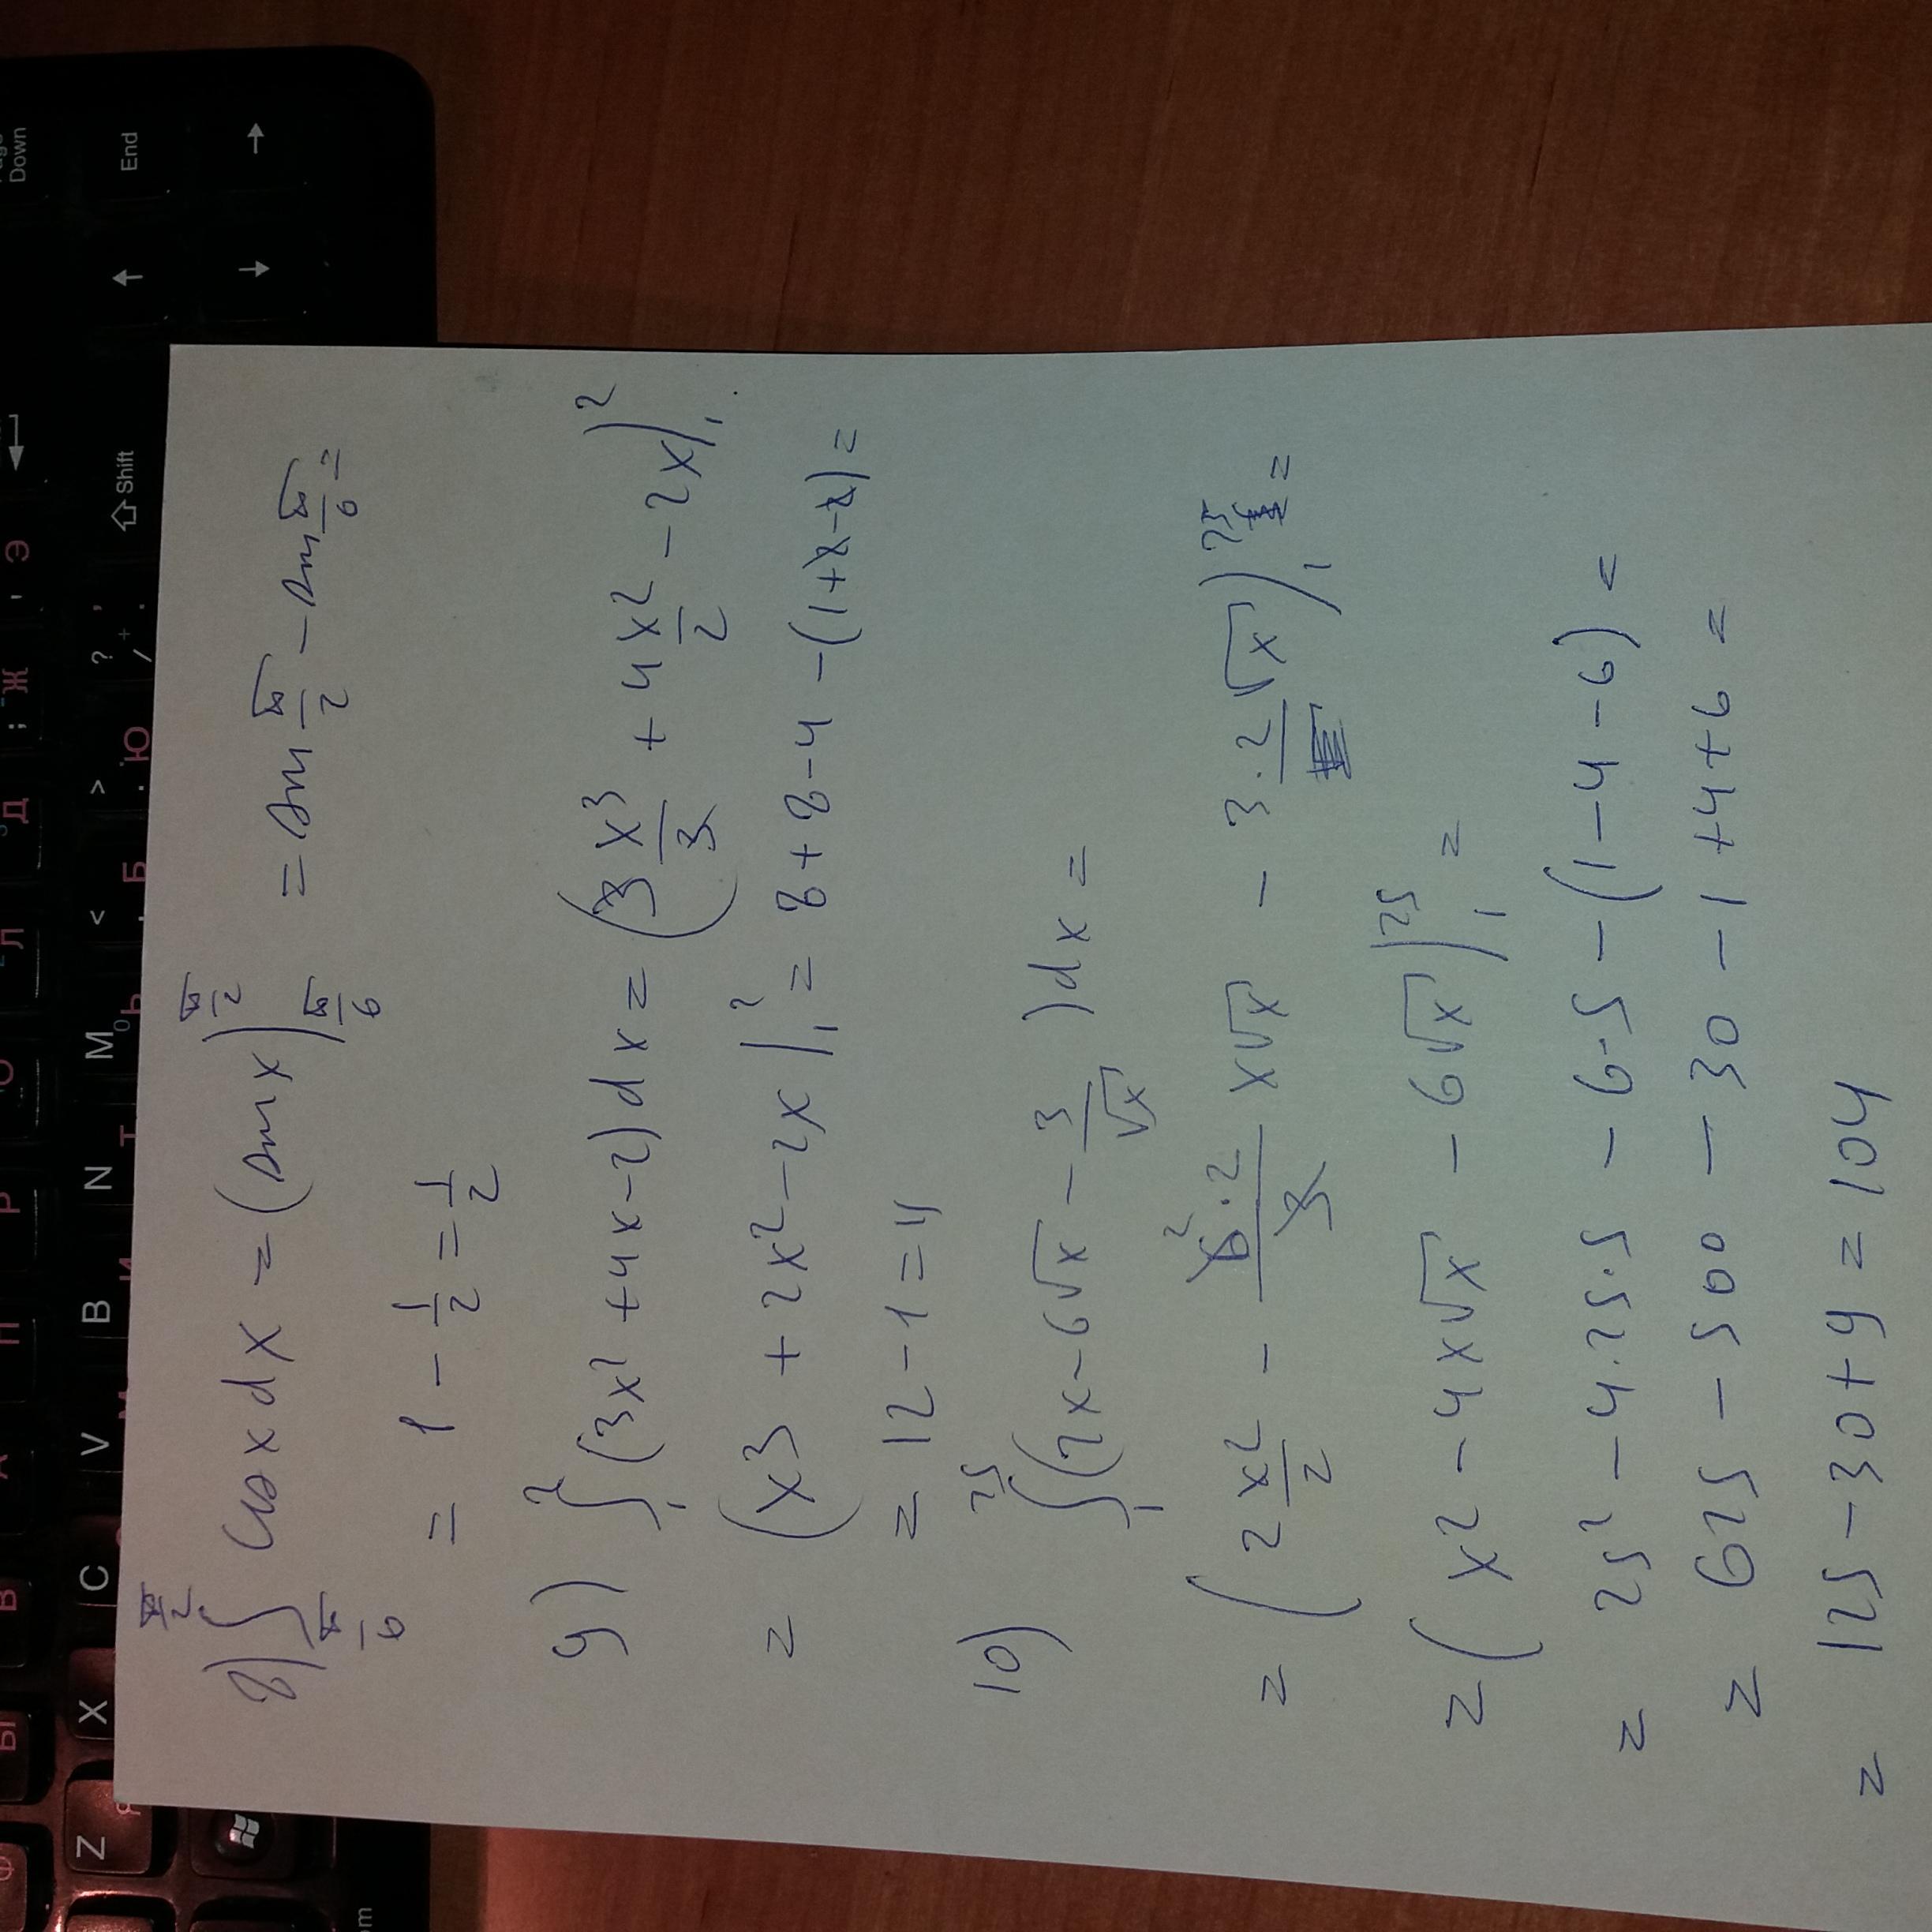 8) ∫_{π/6}^{π/2} cos x dx = (sin x)|_{π/6}^{π/2} = sin π/2 - sin π/6 =
= 1 - 1/2 = 1/2
9) ∫_1^2 (3x² + 4x - 2) dx = (3 x³/3 + 4 x²/2 - 2x)|_1^2
= (x³ + 2x² - 2x |_1^2 = 8 + 8 - 4 - (1 + 2 - 2) =
= 12 - 1 = 11
10) ∫_1^25 (2x - 6√x - 3/√x) dx =
= (2 x²/2 - 6·2/3 x√x - 3·2√x)|_1^25 =
= (x² - 4x√x - 6√x)|_1^25 =
= 25² - 4·25·5 - 6·5 - (1 - 4 - 6) =
= 625 - 500 - 30 - 1 + 4 + 6 =
= 125 - 30 + 9 = 104
Down
End
Shift
Z X C V B N M < > ? /
Я И Т Ь Б Ю .
Ф Ы В А П Р О Л Д Ж Э